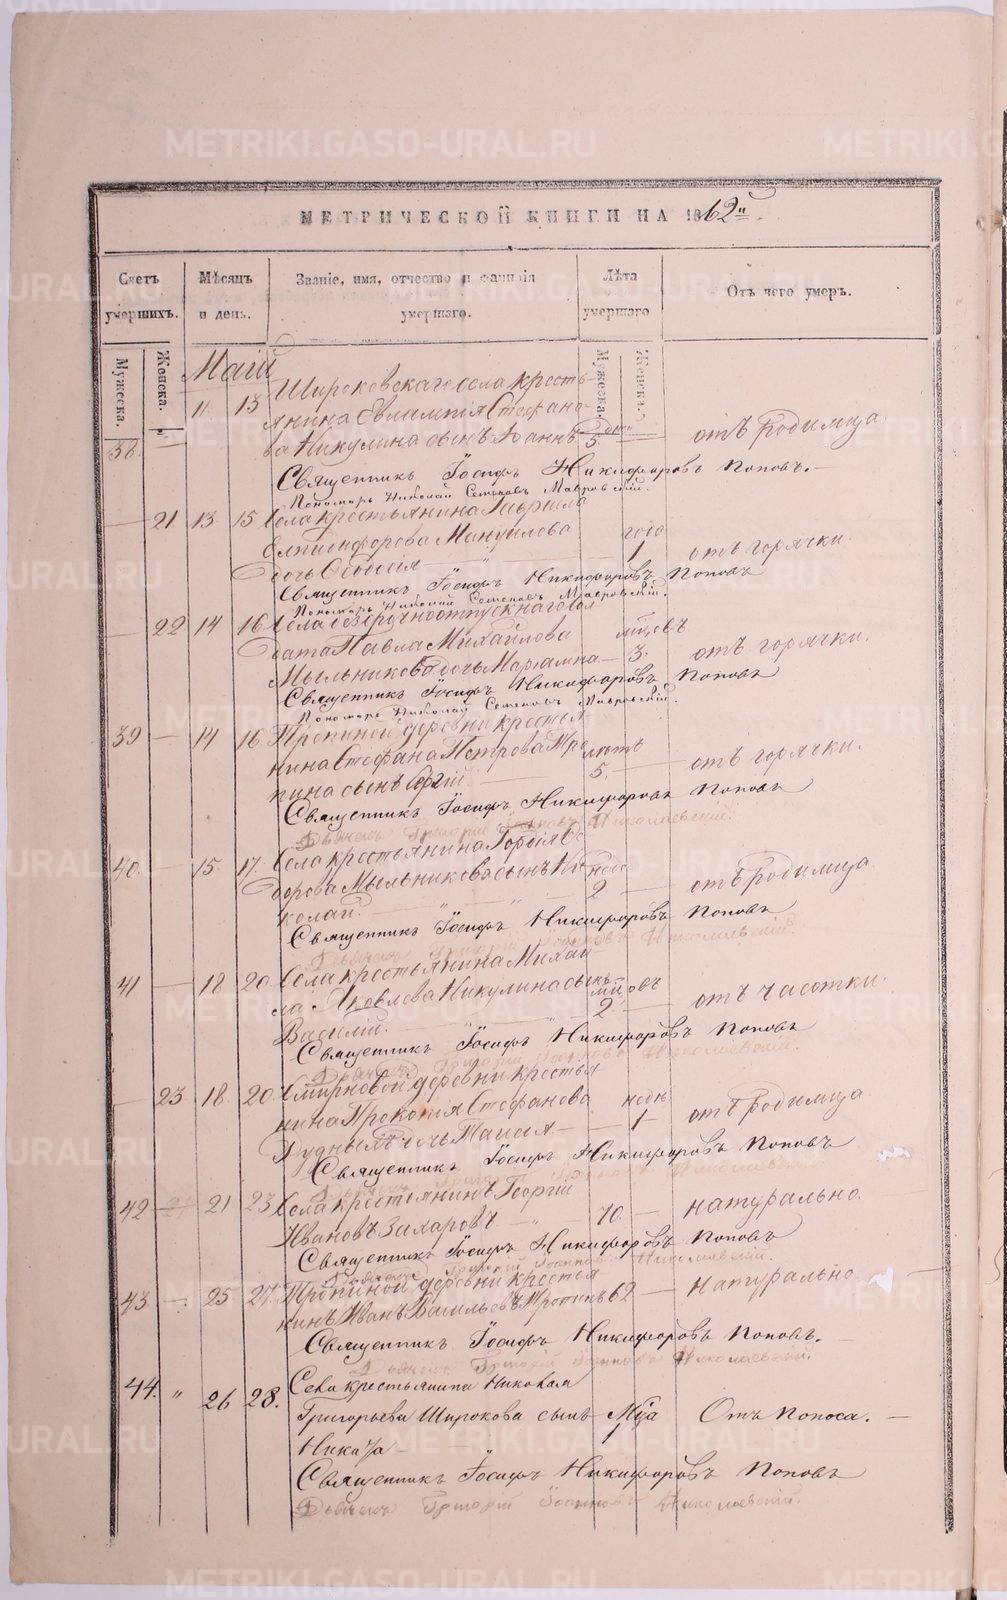 МЕТРИЧЕСКОЙ КНИГИ НА 1862й.
Счетъ умершихъ.
Мѣсяцъ и день.
Званіе, имя, отчество и фамилія умершаго.
Лѣта умершаго
Отъ чего умеръ.
Мужеска.
Женска.
Мужеска.
Женска.
Маій
Широковскаго села кресть-
38. — 11. 13 янина Евлампія Стефано-
ва Никулина сынъ Іоаннъ 5 дней — отъ родимца
Священникъ Іосифъ Никифоровъ Поповъ.—
Пономарь Николай Семеновъ Мавровскій.
— 21 13 15 Села крестьянина Гаврила
Елпидифорова Мануилова года
дочь — 1 отъ горячки
Священникъ Іосифъ Никифоровъ Поповъ
Пономарь Николай Семеновъ Мавровскій.
— 22 14 16 Села безсрочноотпускнаго сол
дата Павла Михайлова мѣсцовъ
Мыльникова дочь Маріамна — 3. отъ горячки.
Священникъ Іосифъ Никифоровъ Поповъ
Пономарь Николай Семеновъ Мавровскій.
39 — 14 16. Тропиной деревни крестья-
нина Стефана Петрова Тро лѣтъ
пина сынъ Сергій — 5. — отъ горячки.
Священникъ Іосифъ Никифоровъ Поповъ
Дьячекъ Григорій Іоанновъ Николаевскій.
40. — 15 17. Села крестьянина Гордія Ѳе
дорова Мыльникова сынъ Ни нед
колай. 2 — отъ родимца
Священникъ Іосифъ Никифоровъ Поповъ
Дьячекъ Григорій Іоанновъ Николаевскій.
41 — 18 20. Села крестьянина Михаи
ла Яковлева Никулина сынъ мѣсцовъ
Василій. 2 — отъ чесотки.
Священникъ Іосифъ Никифоровъ Поповъ
Дьячекъ Григорій Іоанновъ Николаевскій.
— 23 18. 20. Смирновой деревни крестья
нина Прокопія Стефанова недѣ
дочь Таисія — 1 отъ родимца
Священникъ Іосифъ Никифоровъ Поповъ
Дьячекъ Григорій Іоанновъ Николаевскій
42 — 21 23. Села крестьянинъ Георгій
Ивановъ Захаровъ 70. — натурально.
Священникъ Іосифъ Никифоровъ Поповъ
Дьячекъ Григорій Іоанновъ Николаевскій.
43 — 25 27. Тропиной деревни крестья
нинъ Иванъ Васильевъ Тропинъ 62 — натурально
Священникъ Іосифъ Никифоровъ Поповъ.
Дьячекъ Григорій Іоанновъ Николаевскій.
44. " 26 28. Села крестьянина Николая
Григорьева Широкова сынъ Мѣца Отъ поноса. —
Никита — 1
Священникъ Іосифъ Никифоровъ Поповъ
Дьячекъ Григорій Іоанновъ Николаевскій.
METRIKI.GASO-URAL.RU